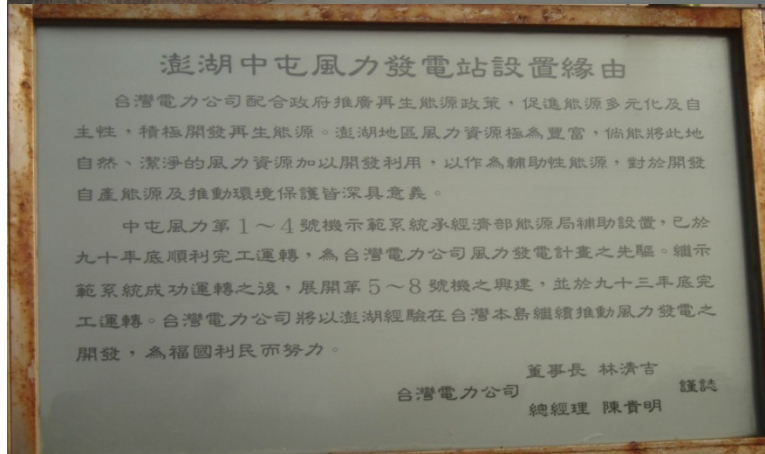 澎湖中屯風力發電站設置緣由
台灣電力公司配合政府推廣再生能源政策，促進能源多元化及自
主性，積極開發再生能源。澎湖地區風力資源極為豐富，倘能將此地
自然、潔淨的風力資源加以開發利用，以作為輔助性能源，對於開發
自產能源及推動環境保護皆深具意義。
中屯風力第1～4號機示範系統承經濟部能源局補助設置，已於
九十年底順利完工運轉，為台灣電力公司風力發電計畫之先驅。繼示
範系統成功運轉之後，展開第5～8號機之興建，並於九十三年底完
工運轉。台灣電力公司將以澎湖經驗在台灣本島繼續推動風力發電之
開發，為福國利民而努力。
台灣電力公司 董事長 林清吉
總經理 陳貴明 謹誌